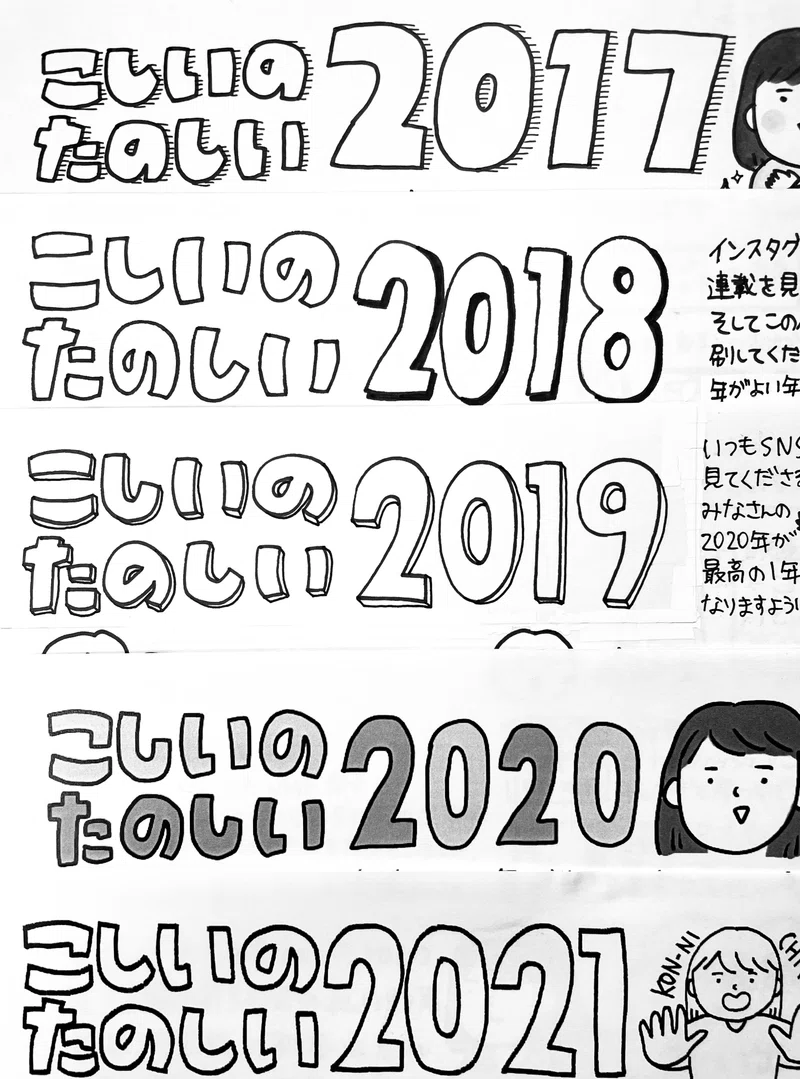 こしいの
たのしい
2017
こしいの
たのしい
2018
インスタグ
連載を見
そしてこの
刷してくだ
年がよい年
こしいの
たのしい
2019
いつもSNS
見てくださ
みなさんの
2020年が
最高の1年
なりますよう
こしいの
たのしい
2020
こしいの
たのしい
2021
KON-NI
CHI